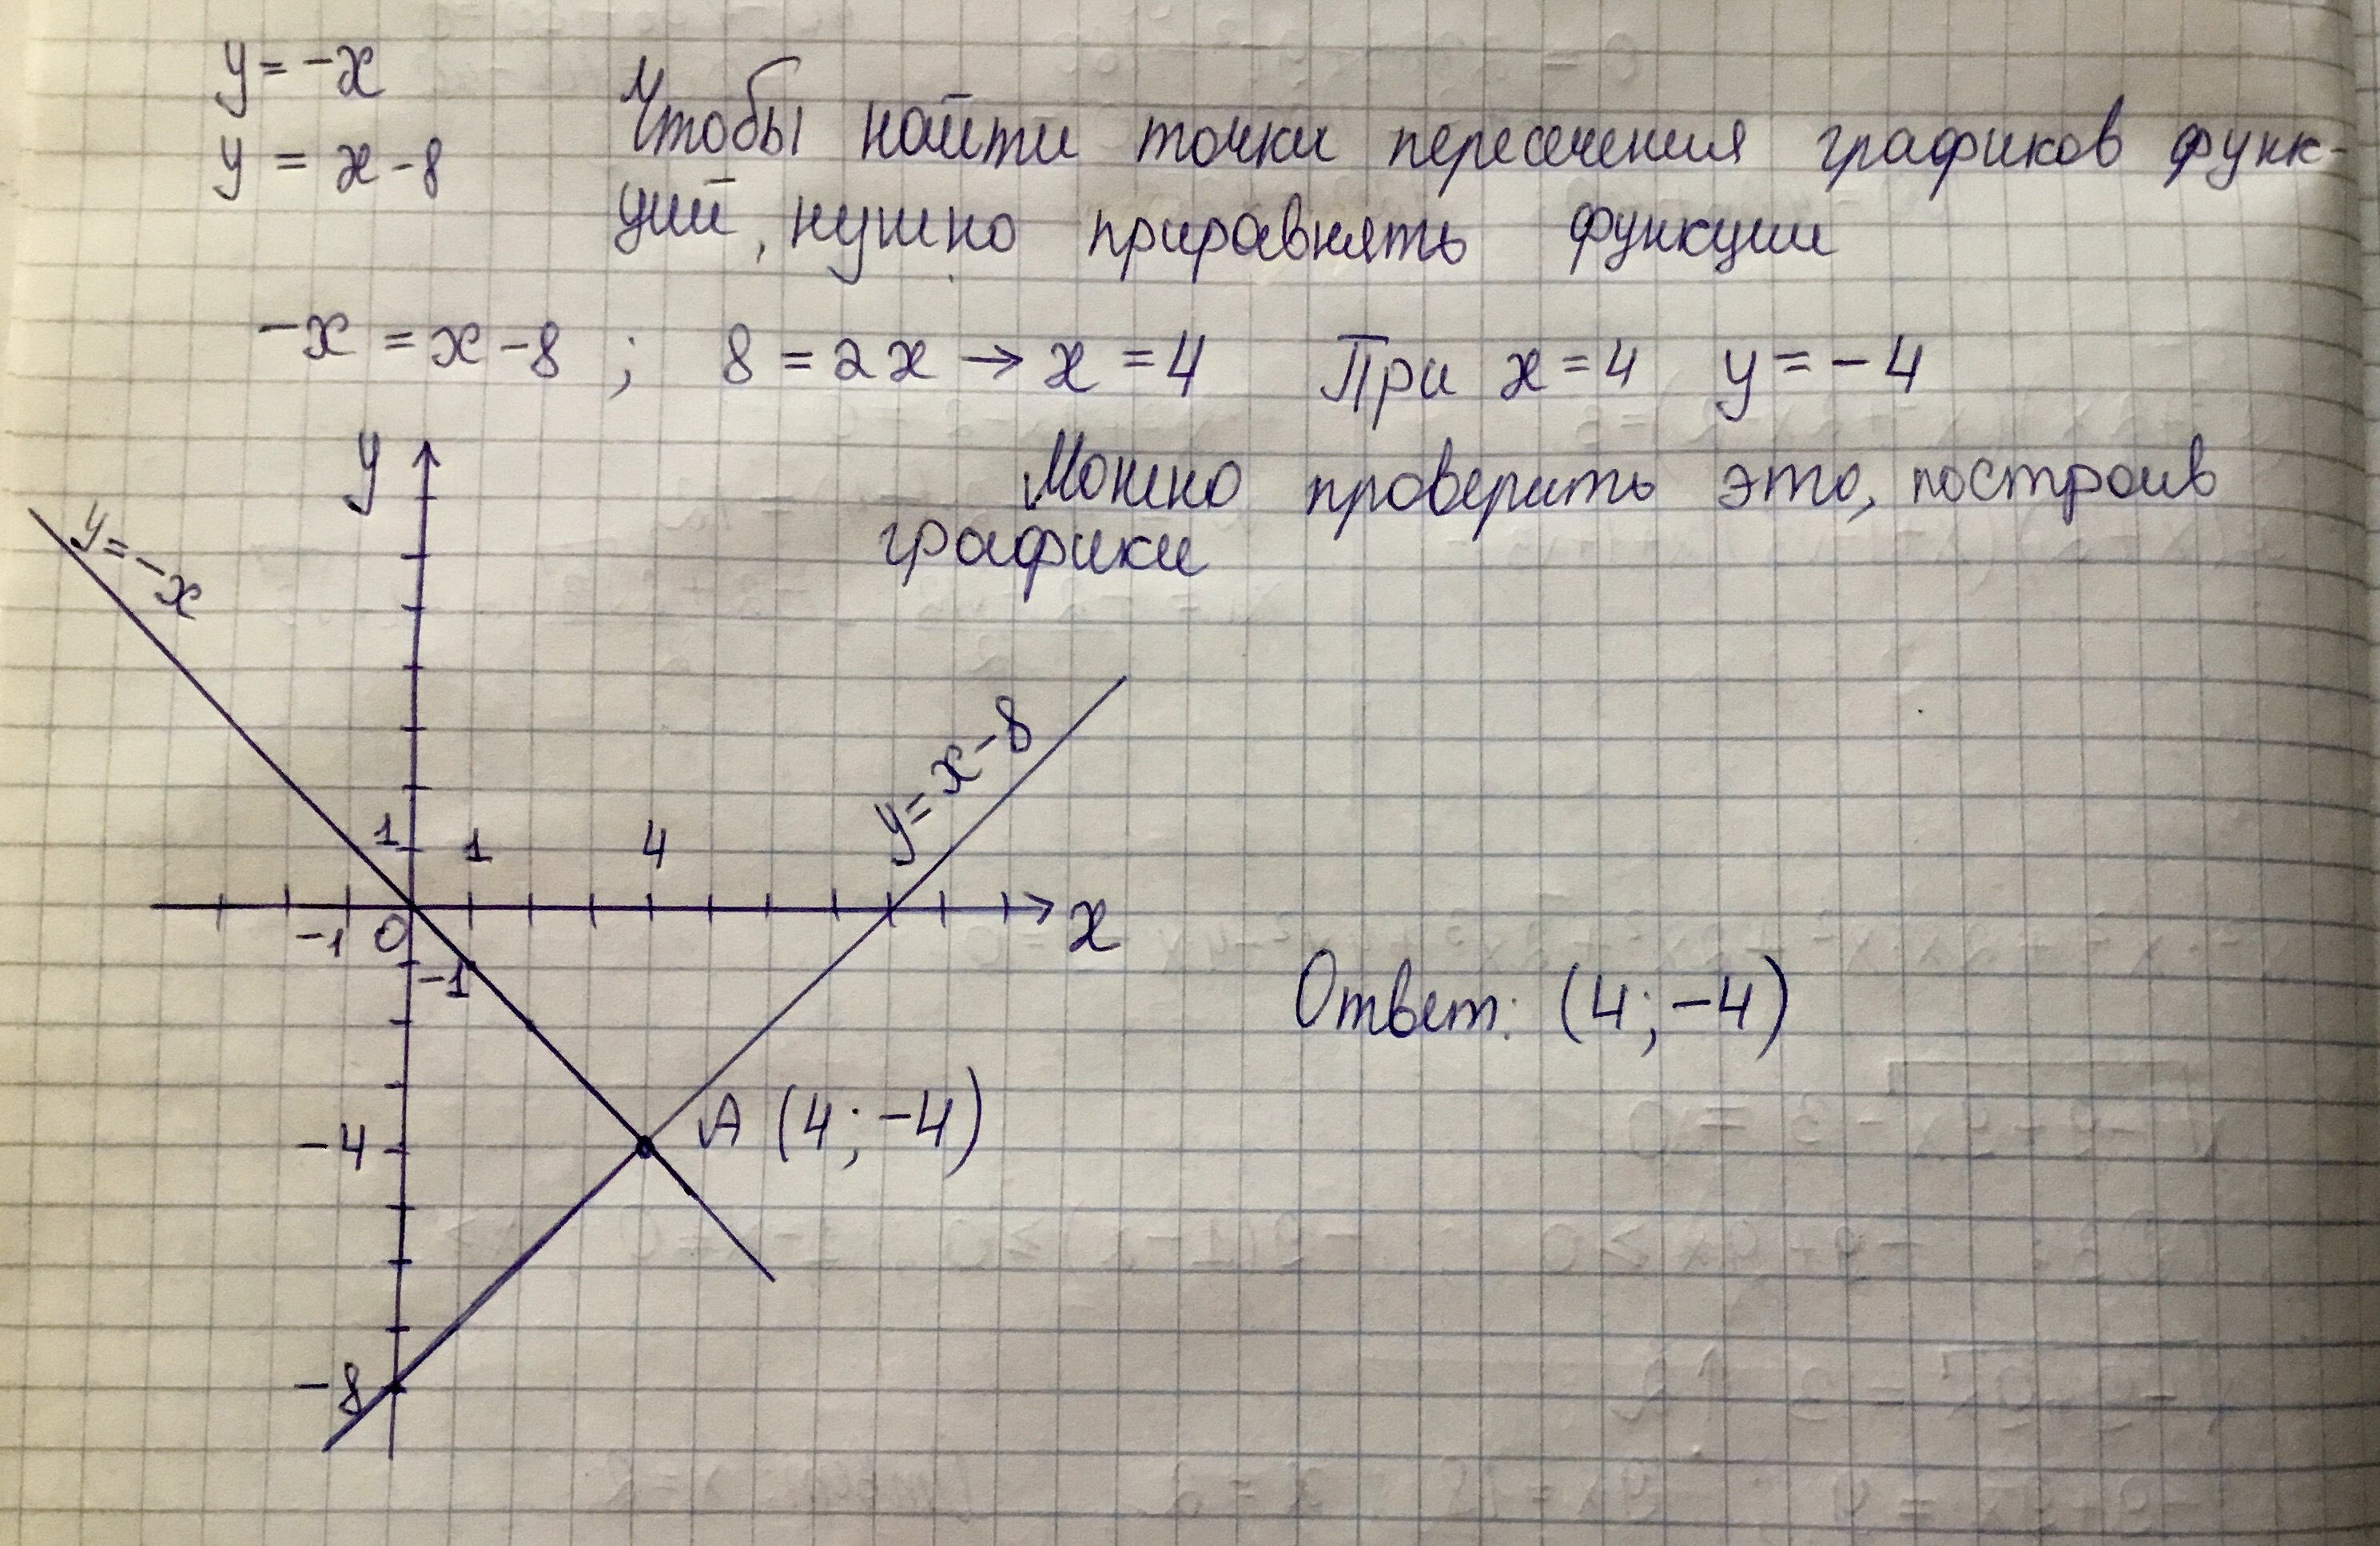 y = -x
y = x - 8
Чтобы найти точки пересечения графиков функ-
ций, нужно приравнять функции
-x = x - 8 ; 8 = 2x → x = 4 При x = 4 y = -4
Можно проверить это, построив
графики
y
y = -x
y = x - 8
1 1 4
-1 0 x
-1
Ответ: (4; -4)
-4 A (4; -4)
-8